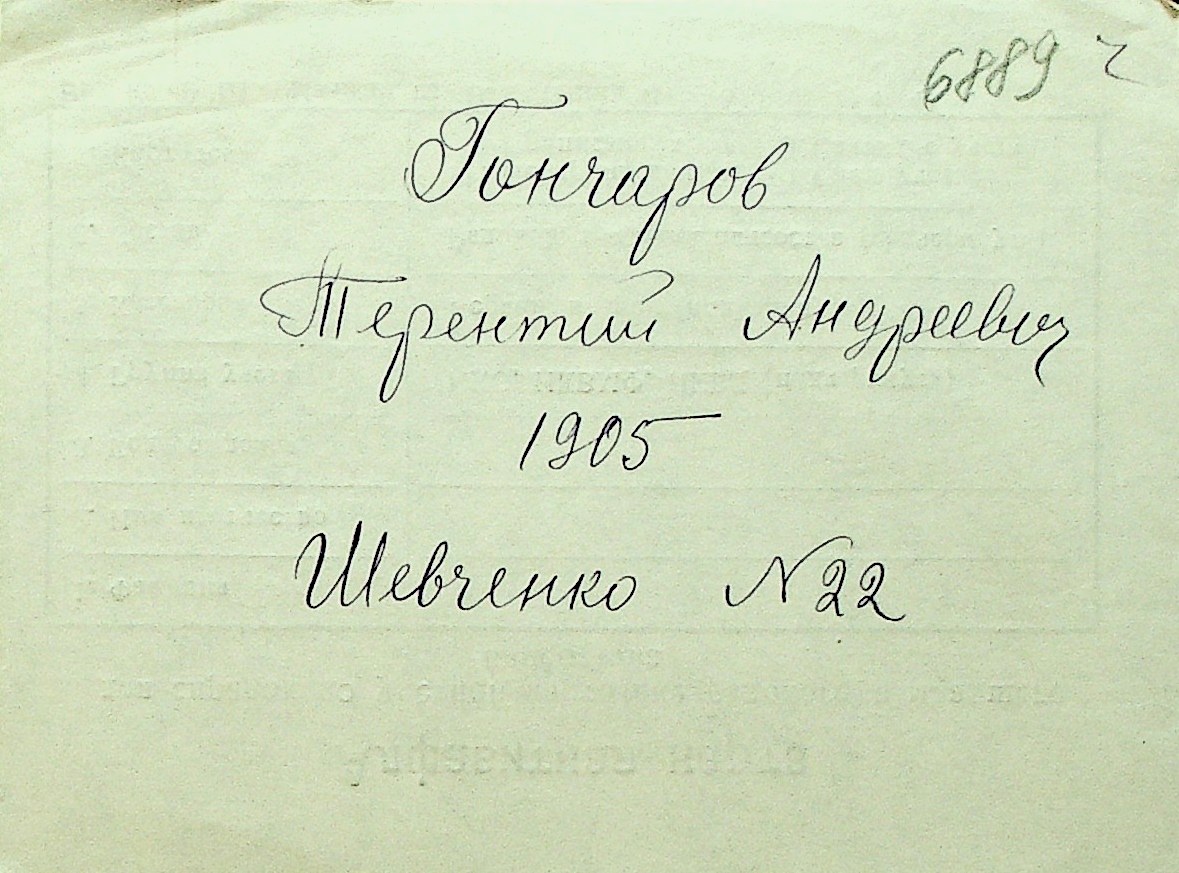 6889 ч
Гончаров
Терентий Андреевич
1905
Шевченко N 22